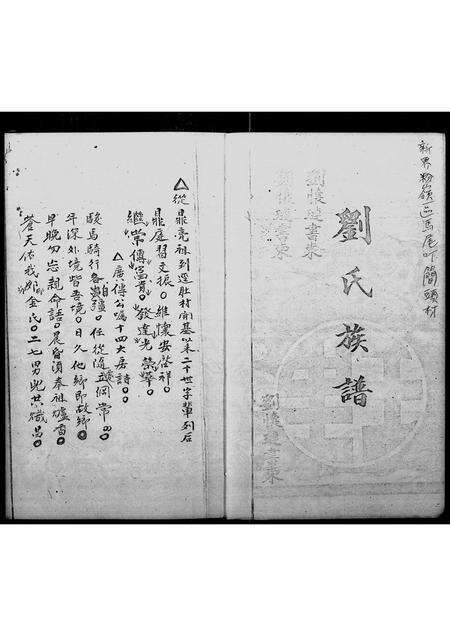 新界粉嶺區馬尾吓簡頭村
劉氏族譜
△從鼎亮祖列選肚村開基以來二十世字輩列后
鼎庭習文振。維懷安啓祥。
繼常傳富貴。發達光榮華。
△廣傳公嘱十四大房詩。
駿馬騎行各出疆。任從隨地立綱常。
年深外境皆吾境。日久他鄉即故鄉。
早晚勿忘親命語。晨昏須奉祖爐香。
蒼天佑我卯金氏。二七男兒共熾昌。